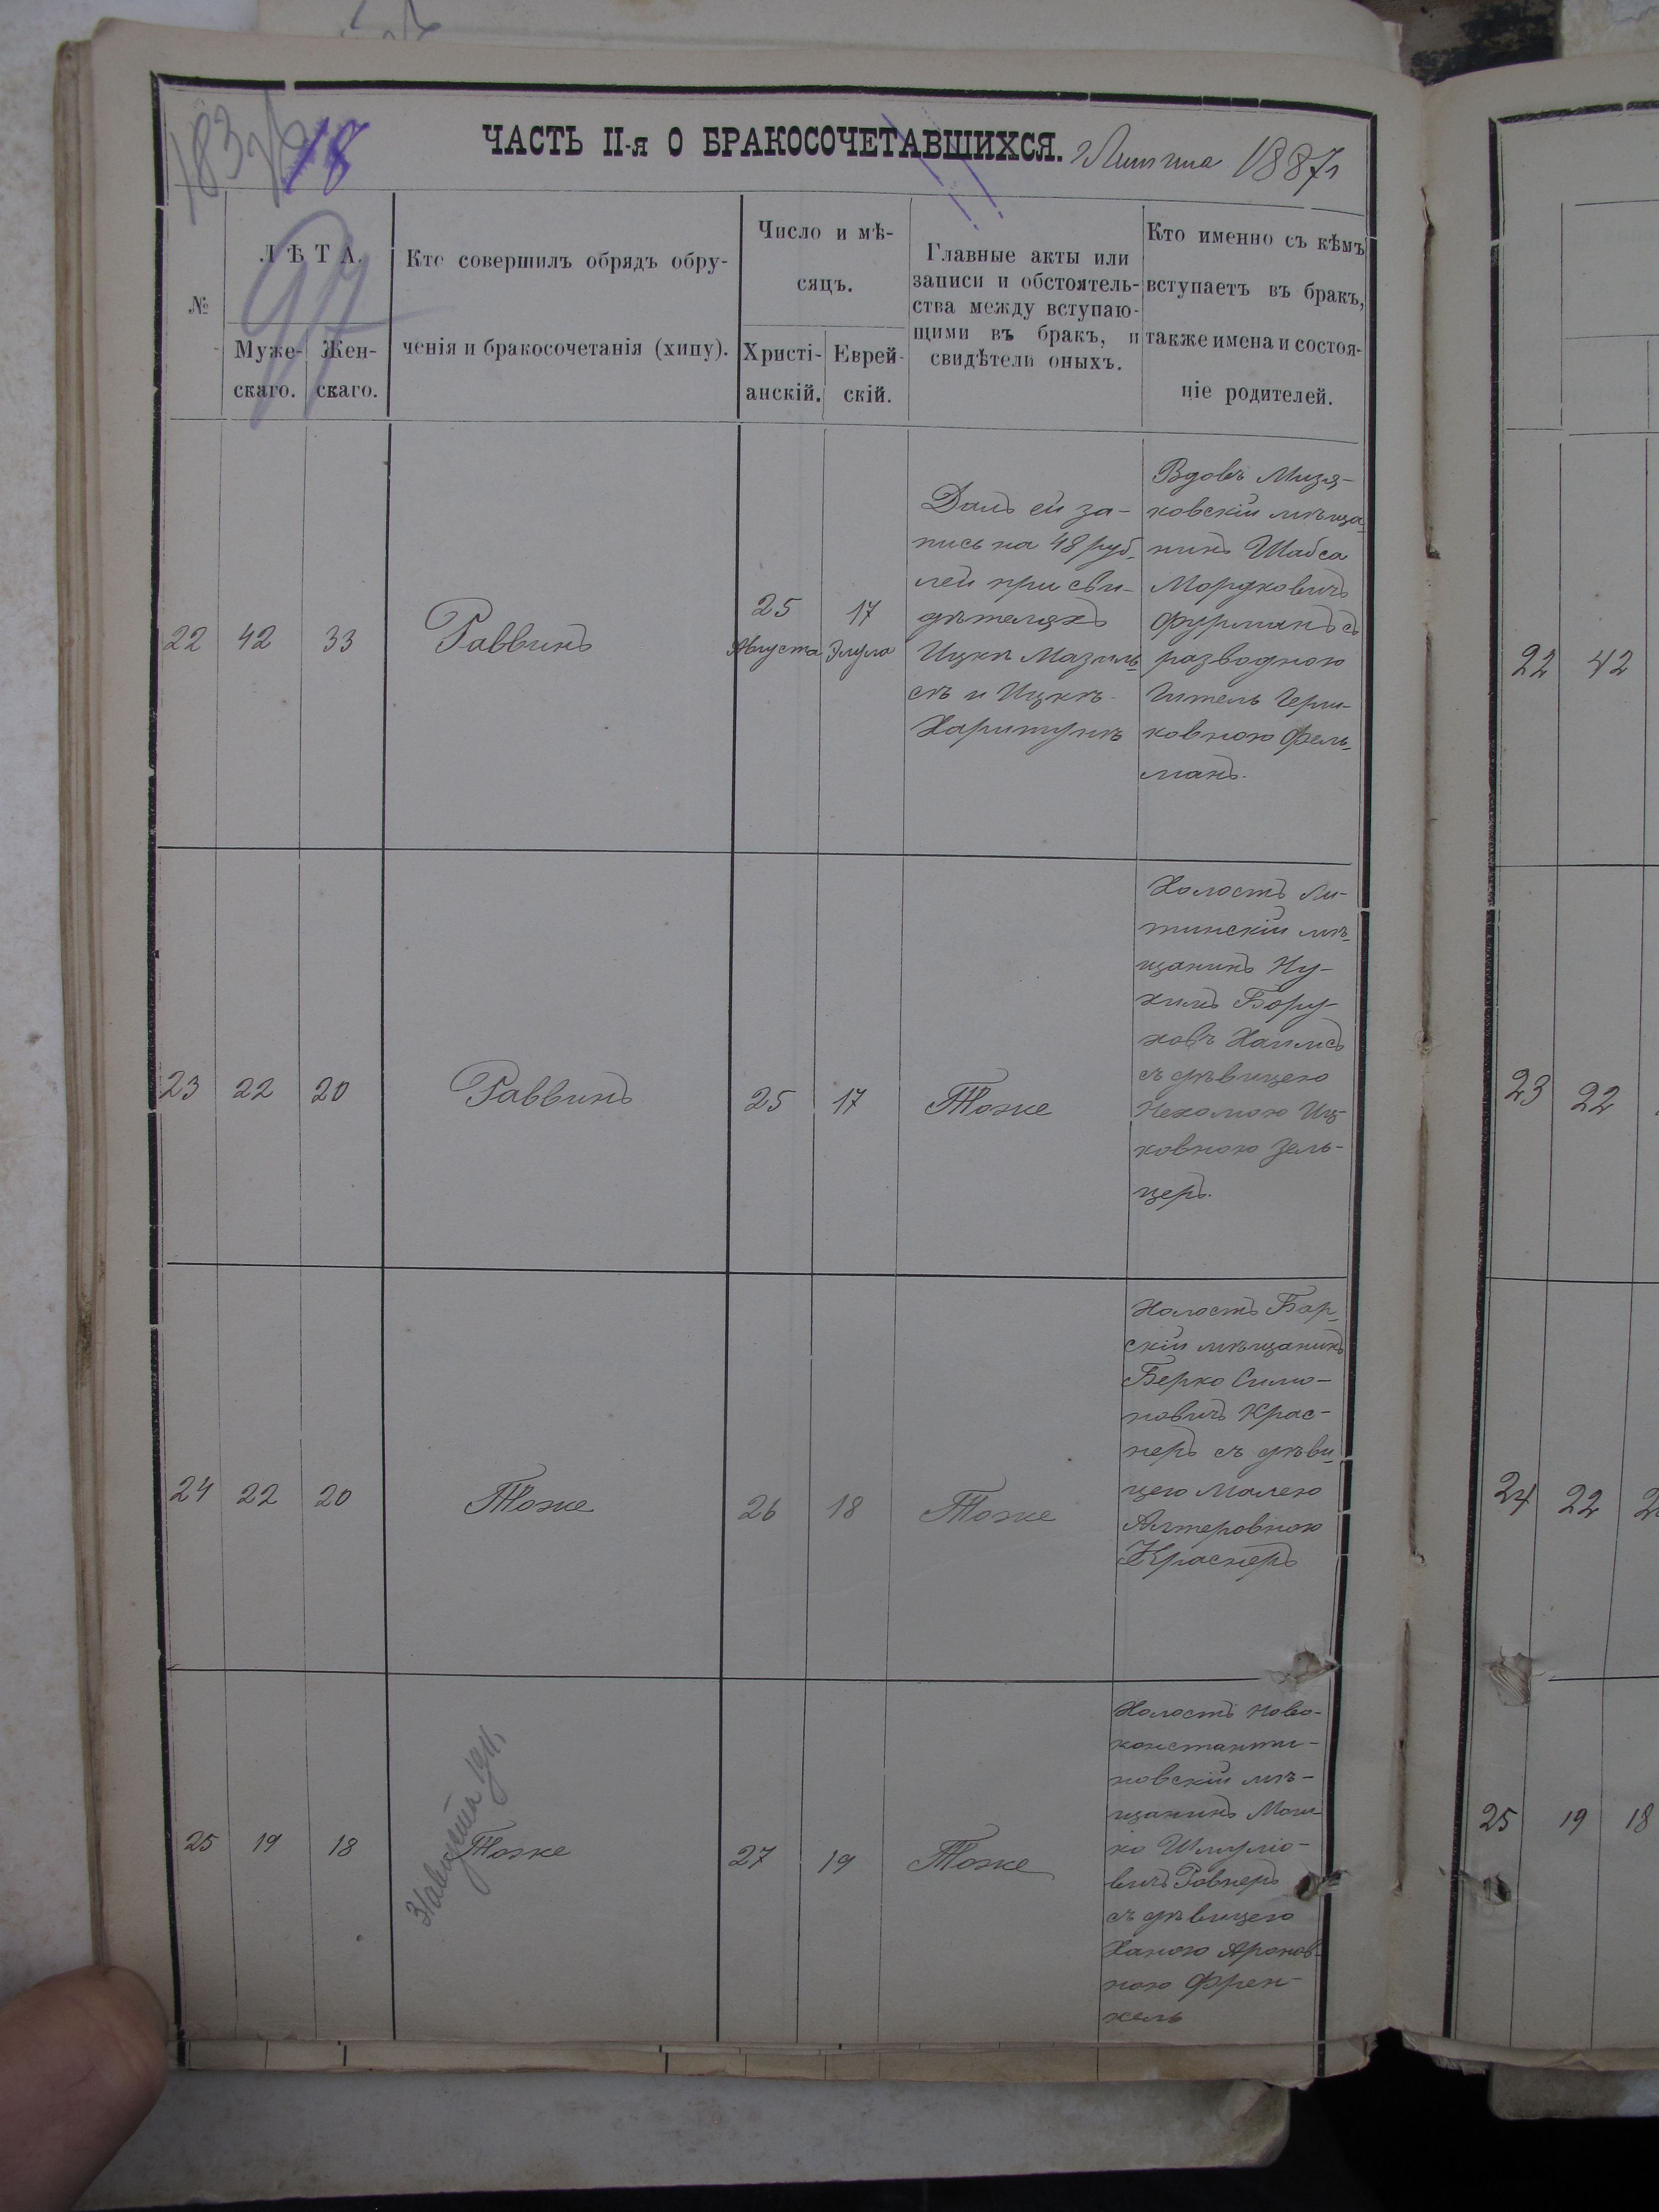 183
18
97
ЧАСТЬ II-я О БРАКОСОЧЕТАВШИХСЯ. г Литина 1887 г
№
ЛѢТА.
Муже-
скаго.
Жен-
скаго.
Кто совершилъ обрядъ обру-
ченія и бракосочетанія (хипу).
Число и мѣ-
сяцъ.
Христі-
анскій.
Еврей-
скій.
Главные акты или
записи и обстоятель-
ства между вступаю-
щими въ бракъ, и
свидѣтели оныхъ.
Кто именно съ кѣмъ
вступаетъ въ бракъ,
также имена и состоя-
ніе родителей.
22
42
33
Раввинъ
25
Августа
17
Элула
Далъ ей за-
пись на 48 руб-
лей при сви-
дѣтеляхъ
Ицкѣ Мазиль
скѣ и Ицкѣ
Харитункѣ
Вдовъ Мизя-
ковскій мѣща-
нинъ Шабса
Мордковичъ
Фурманъ съ
разводною
Гитель Герш-
ковною Фель-
манъ.
23
22
20
Раввинъ
25
17
Тоже
Холостъ Ли-
тинскій мѣ-
щанинъ Ну-
химъ Бору-
ховъ Хаимсъ
съ дѣвицею
Нехамою Иц-
ковною Зель-
церъ.
24
22
20
Тоже
26
18
Тоже
Холостъ Бар-
скій мѣщанинъ
Берко Симо-
новичъ Крас-
неръ съ дѣви-
цею Малею
Алтеровною
Краснеръ
25
19
18
Тоже
27
19
Тоже
Холостъ Ново-
константи-
новскій мѣ-
щанинъ Мош
ко Шмулiо-
вичъ Ровнеръ
съ дѣвицею
Ханою Аронов-
ною Френ-
кель
22 42
23 22
24 22
25 19 18